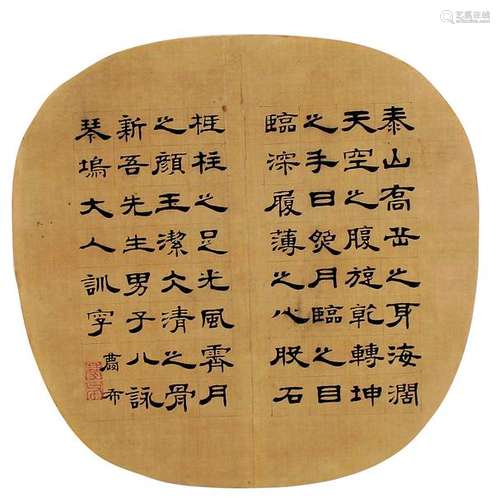 泰山喬岳之身海濶
天空之腹旋乾轉坤
之手日月臨之目
臨深履薄之心般石
柱之足光風霽月
之顏玉潔仌清之骨
新吾先生男子八詠
琴塢大人訓字